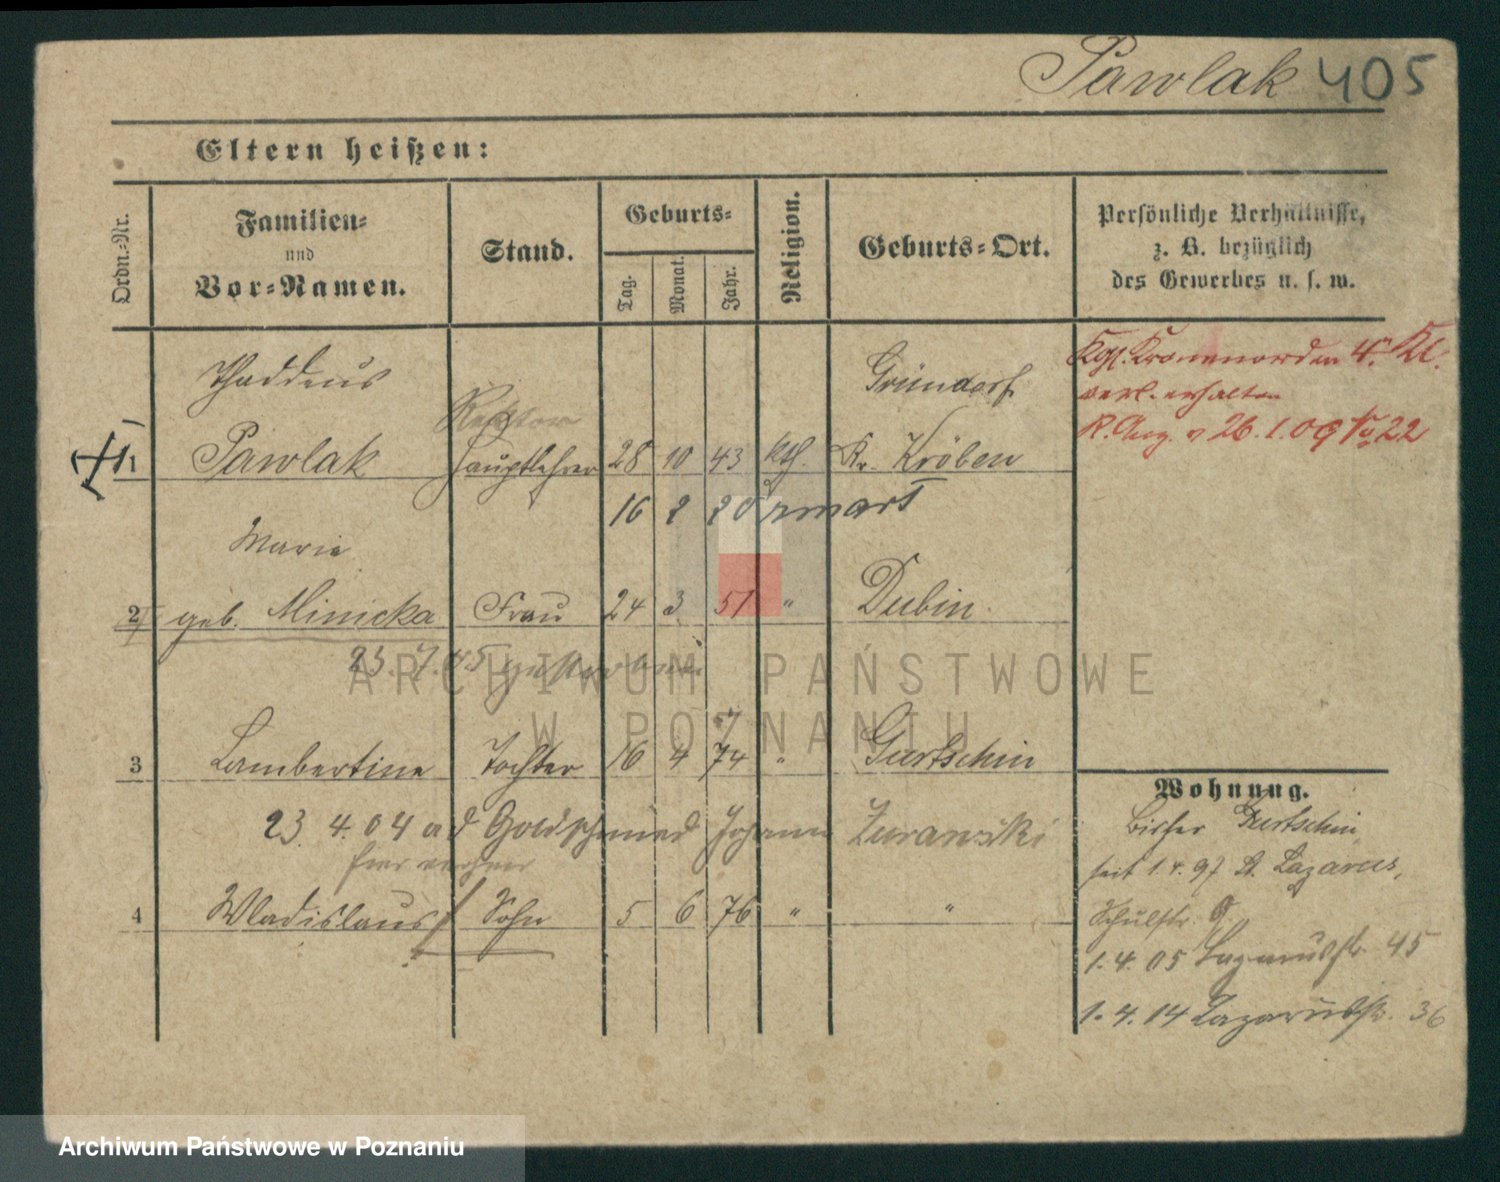 Pawlak 405
Eltern heißen:
Ordn.-Nr.
Familien-
und
Vor-Namen.
Stand.
Geburts-
Tag.
Monat.
Jahr.
Religion.
Geburts-Ort.
Persönliche Verhältnisse,
z. B. bezüglich
des Gewerbes u. s. w.
Thaddeus Gründorf
Rektor
1 Pawlak Hauptlehrer 28 10 43 kth. Kr. Kröben
16 2 20
Kgl. Kronenorden 4. Kl.
verl. erhalten
R. Anz. v 26.1.09 No 22
Marie
2 geb. Minicka Frau 24 3 51 " Dubin.
23.7.05 gestorben
3 Lambertine Tochter 16 4 74 " Gurtschin
23. 4. 04 a d Goldschmied Johann Zuranski
4 Wladislaus Sohn 5 6 76 " "
Wohnung.
Bisher Gurtschin
seit 1.4.97 St. Lazarus,
Schulstr. 9.
1.4.05 Lazarusstr. 45
1.4.14 Lazarusstr. 36
ARCHIWUM PAŃSTWOWE
W POZNANIU
Archiwum Państwowe w Poznaniu